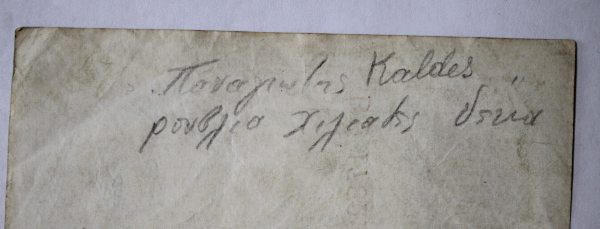 Παναγιωτης Kaldes
ρουβλια χιλιαδες δεκα